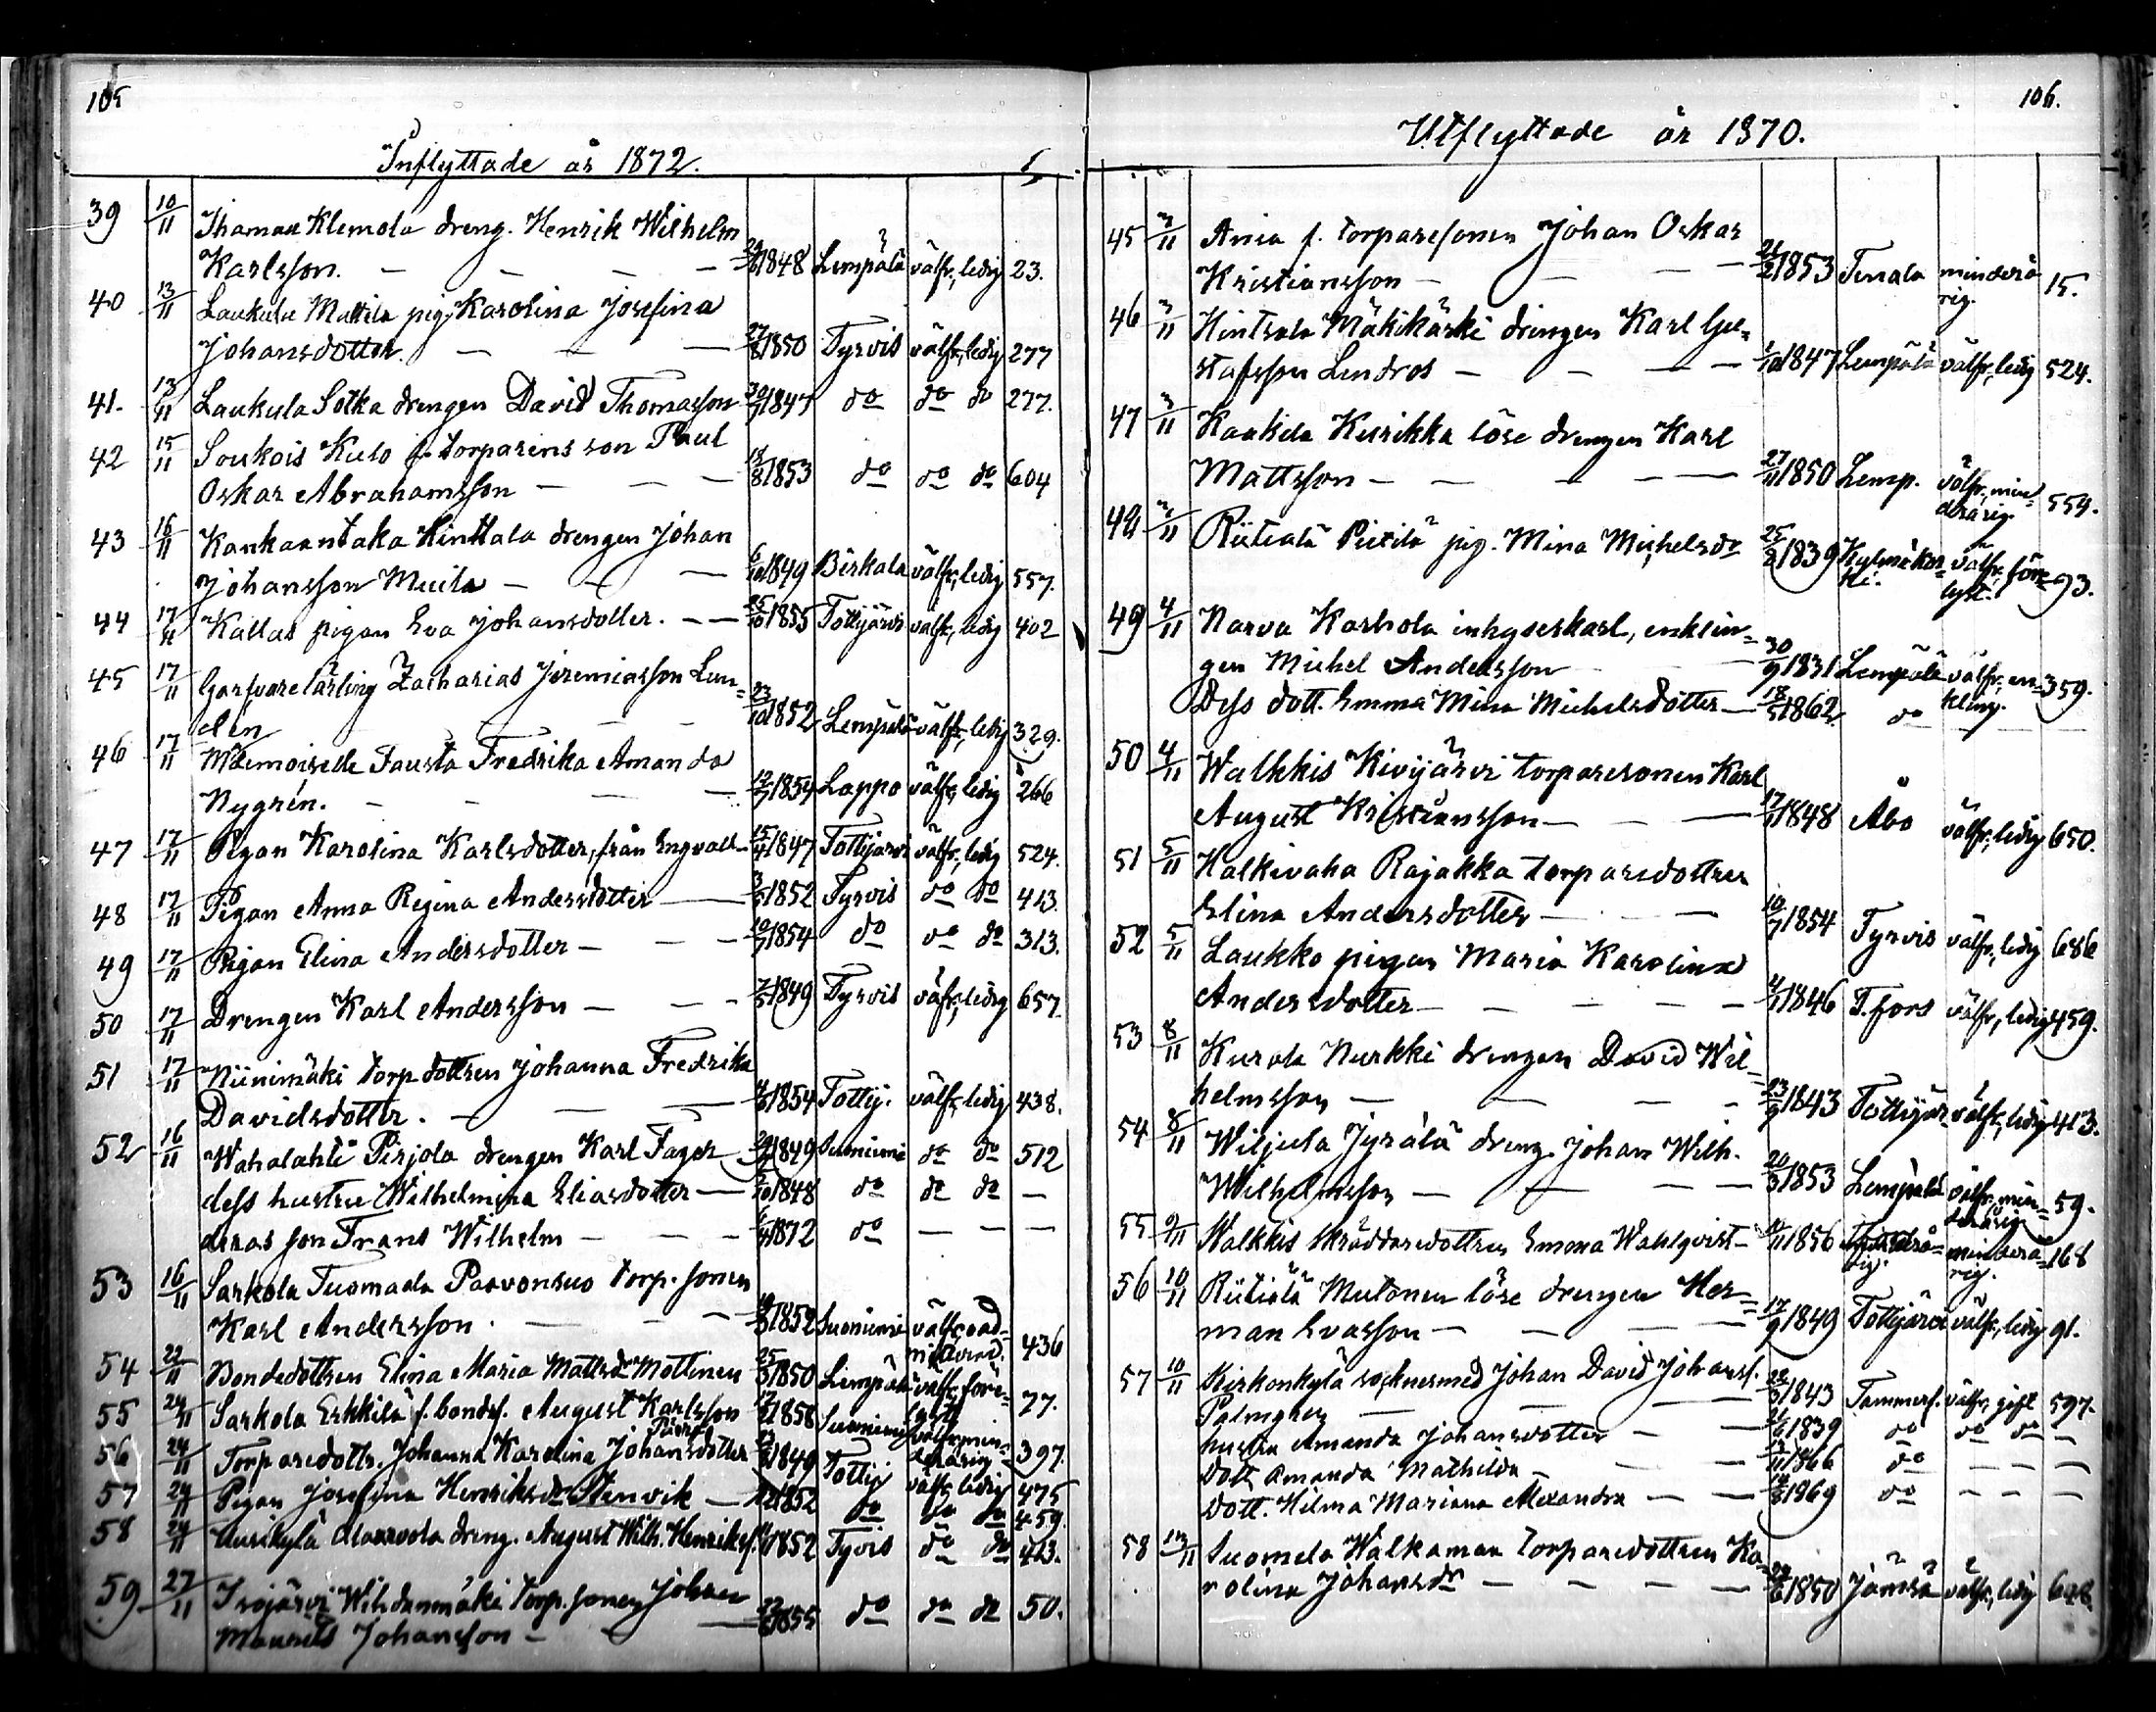 105
Inflyttade år 1872.
39 10/11 Thamau Klemola dreng. Henrik Wilhelm
Karlsson. 1848 Lempälä välfr, ledig 23.
40 13/11 Laukula Mattila pig. Karolina Josefina
Johansdotter. 27/8 1850 Tyrvis välfr, ledig 277
41. 13/11 Laukula Sotka drengen David Thomasson 30/9 1847 do do do 277.
42 15/11 Soukois Kulo f. torparens son Paul
Oskar Abrahamsson 18/8 1853 do do do 604
43 16/11 Kankaantaka Hinttala drengen Johan
Johansson Muila 6/10 1849 Birkala välfr, ledig 557.
44 17/11 Kallas pigan Eva Johansdotter. 1855 Tottijärvi välfr, ledig 402
45 17/11 Garfvarelärling Zacharias Jeremiasson Lun=
den 23/10 1852 Lempälä välfr, ledig 329.
46 17/11 Mademoiselle Fausta Fredrika Amanda
Nygrén. 12/7 1854 Lappo välfr, ledig 266
47 17/11 Pigan Karolina Karlsdotter, från Engvall 1847 Tottijärvi välfr, ledig 524.
48 17/11 Pigan Anna Regina Andersdotter 1852 Tyrvis do do 413.
49 17/11 Pigan Elina Andersdotter 10/7 1854 do do do 313.
50 17/11 Drengen Karl Andersson 1849 Tyrvis välfr, ledig 657
51 17/11 Niinimäki torp dottren Johanna Fredrika
Davidsdotter. 1854 Tottij. välfr, ledig 438.
52 16/11 Wahalahti Pirjola drengen Karl Fager 1849 Suoniemi do do 512
dess hustru Wilhelmina Eliasdotter 1848 do do do
deras son Frans Wilhelm 1872 do
53 16/11 Sarkola Tuomaala Paavonsuo torp. sonen
Karl Andersson. 1852 Suoniemi välfr, oad=
mitterad. 436
54 22/11 Bondedottren Elina Maria Mattsdr Mottinen 25/3 1850 Lempälä välfr, före=
lyst 77.
55 24/11 Sarkola Erkkilä f. bonds. August Karlsson 1858 Suoniemi välfr, min=
derårig 397.
56 24/11 Torparedottr. Johanna Karolina Johansdotter 1849 Tottij välfr, ledig 475
57 24/11 Pigan Josefina Henriksdr Stenvik 1852 do do do 459.
58 24/11 dreng. August Wilh. Henrikss. 1852 Tyrvis do do 413.
59 27/11 Isojärvi torp. sonen Johan
Maurits Johansson 1855 do do do 50.
106.
Utflyttade år 1870.
45 3/11 Ania f. torparesonen Johan Oskar
Kristiansson 1853 Tenala minderå
rig. 15.
46 3/11 Hintsala Mäkikärki drengen Karl Gu=
stafsson Lindros 1/10 1847 Lempälä välfr, ledig 524.
47 3/11 Kaakila Kurikka löse drengen Karl
Mattsson 27/11 1850 Lemp. välfr, min=
derårig. 559.
48 3/11 Riitialä Pietilä pig. Mina Michelsdr 25/2 1839 Kylmäkos=
ki. välfr, före=
lyst. 93.
49 4/11 Narva Karhola inhyseskarl, enklin=
gen Michel Andersson 30/9 1831 Lempälä välfr, en=
kling. 359.
Dess dott. Emma Mina Michelsdotter 18/5 1862 do
50 4/11 Walkkis Kivijärvi torparesonen Karl
August Kristiansson 17/11 1848 Åbo välfr, ledig 650.
51 5/11 Halkivaha Rajakka torparedottren
Elina Andersdotter 10/7 1854 Tyrvis välfr, ledig 686
52 5/11 Laukko pigan Maria Karolina
Andersdotter 1846 T.fors välfr, ledig 459.
53 8/11 Kurala Nurkki drengen David Wil=
helmsson 23/9 1843 Tottijär. välfr, ledig 413.
54 8/11 Wiljula Jyrälä dreng. Johan Wilh.
Wilhelmsson 20/3 1853 Lempälä välfr, min=
derårig 59.
55 9/11 Walkkis Skräddaredottren Emma Wahlqvist 1856 minderå=
rig. 168
56 10/11 Riitialä Mutanen löse drengen Her=
man Evasson 17/9 1849 Tottijärvi välfr, ledig 91.
57 10/11 Kirkonkylä sockensmed Johan David Johanss.
Palmgren 1843 Tammerf. välfr, gift 597.
hustru Amanda Johansdotter 1839 do do do
Dott. Amanda Mathilda 1866 do
Dott. Hilma Mariana Alexandra 1869 do
58 13/11 Suomela Walkaman torparedottren Ka=
rolina Johansdr 1850 Jämsä välfr, ledig